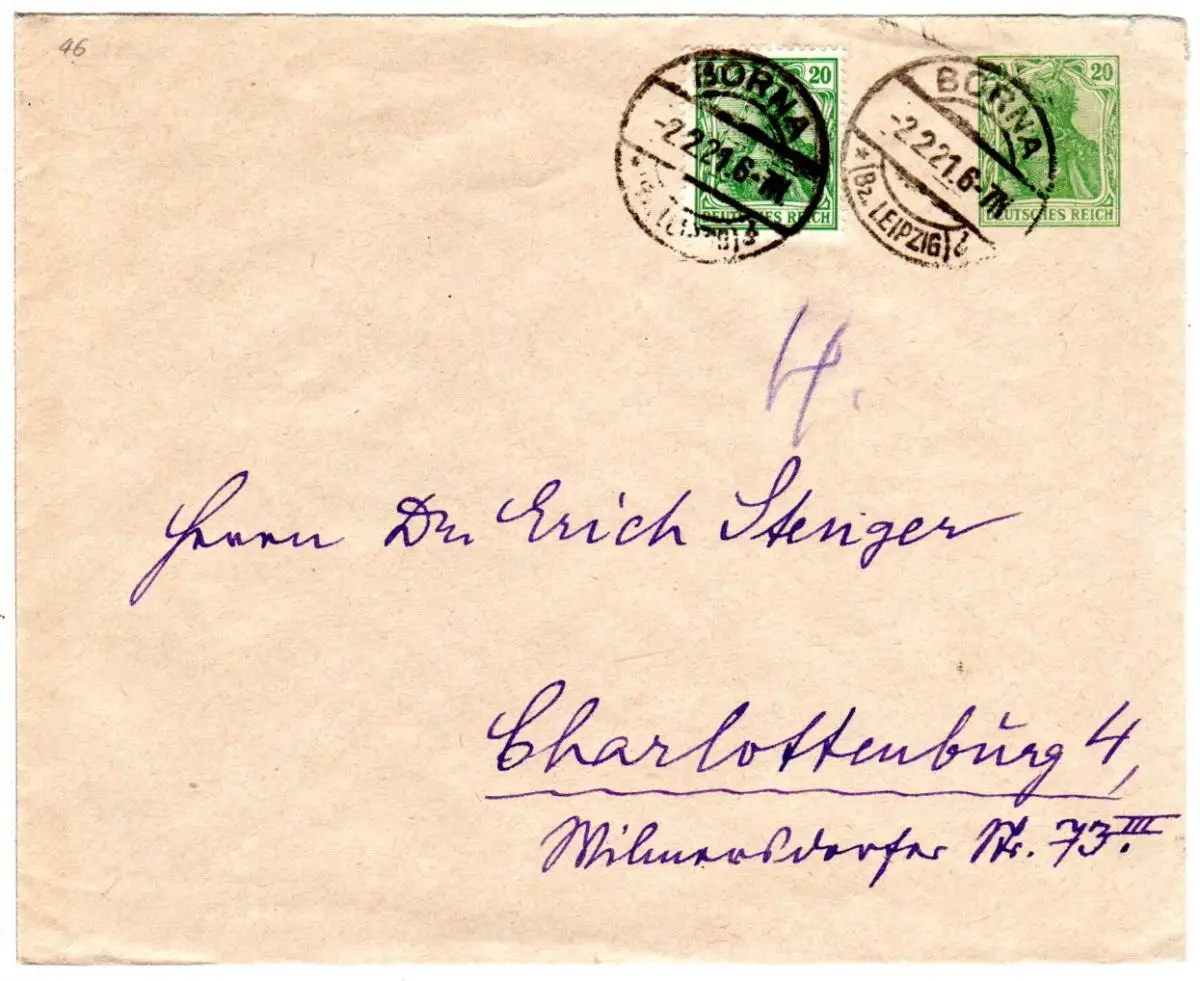 46
20
DEUTSCHES REICH
BORNA
-2.2.21.6-7N
* (Bz. LEIPZIG)
20
DEUTSCHES REICH
BORNA
-2.2.21.6-7N
* (Bz. LEIPZIG)
4.
Herrn Dr. Erich Stenger
Charlottenburg 4,
Wilmersdorfer Str. 73 III.